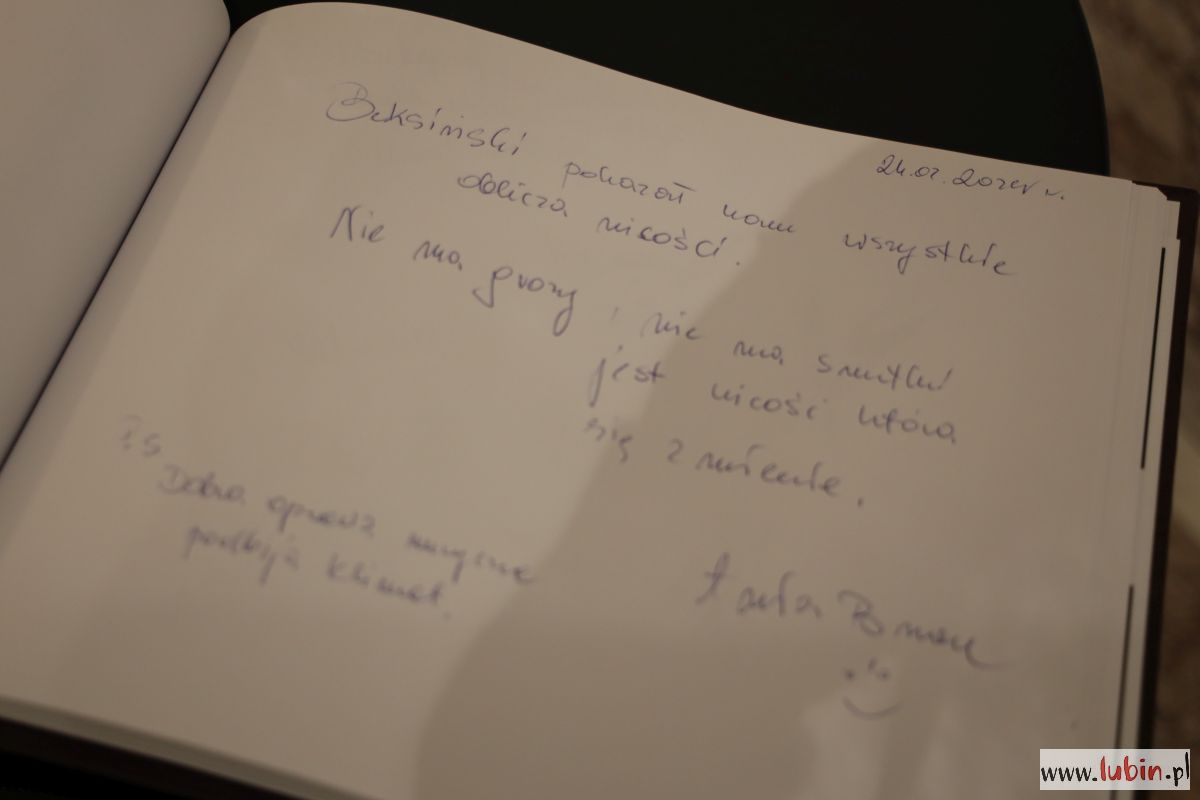 24.02.202
Beksiński pokazał nam wszystkie
oblicza nicości.
Nie ma grozy, nie ma smutku
jest nicość która
się zmienia.
P.S
Dobra oprawa muzyczna
podbija klimat.
www.lubin.pl